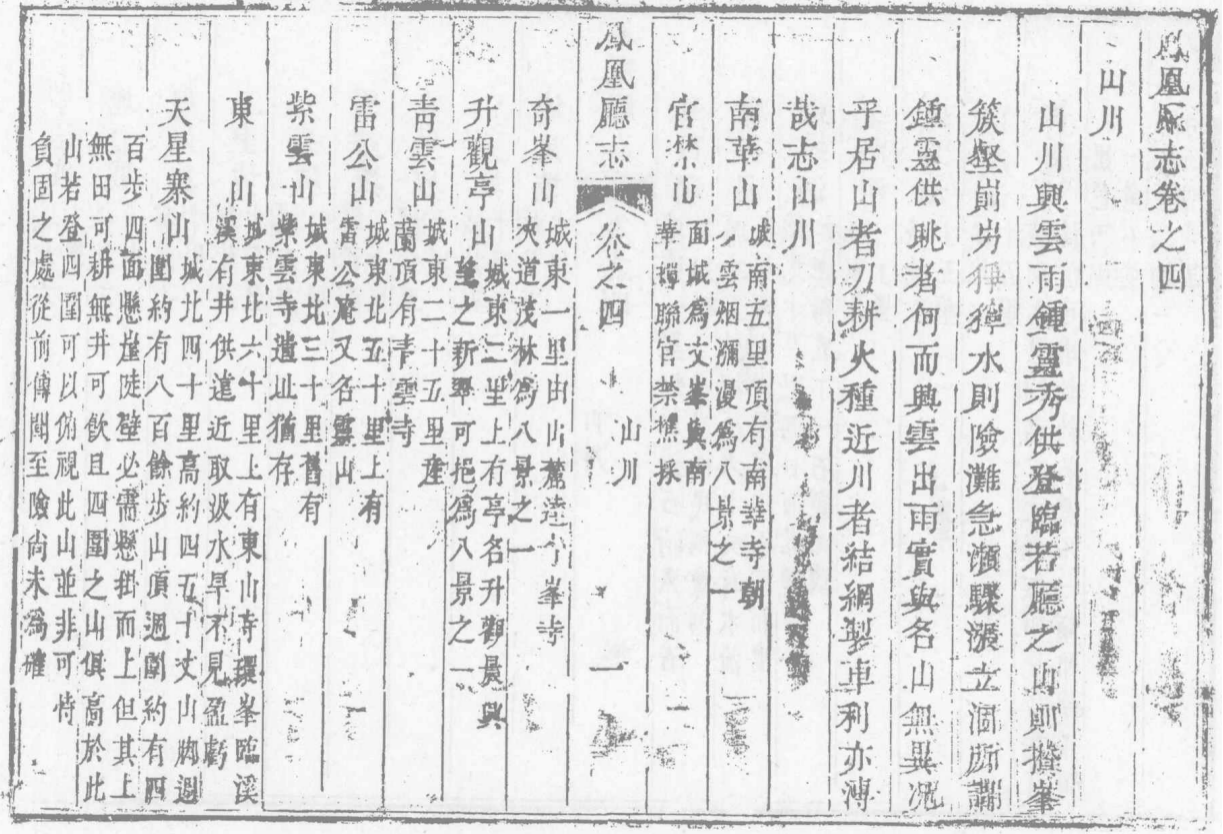 鳳凰廳志卷之四
山川
山川興雲雨鍾靈秀供登臨若廳之山則攢峯
簇壑崱屴猙獰水則險灘急瀨驟漲立涸所謂
鍾靈供眺者何而興雲出雨實與名山無異况
乎居山者刀耕火種近川者結網製車利亦溥
哉志山川
南華山
城南五里頂有南華寺朝
夕雲烟瀰漫爲八景之一
官禁山
面城爲文峯與南
華環聯官禁樵採
鳳凰廳志
卷之四
山川
一
奇峯山
城東一里由山麓達奇峯寺
夾道茂林爲八景之一
升觀亭山
城東二里上有亭名升觀晨興
望之新翠可挹爲八景之一
靑雲山
城東二十五里産
蘭頂有靑雲寺
雷公山
城東北五十里上有
雷公庵又名靈山
紫雲山
城東北三十里舊有
紫雲寺遺址猶存
東山
城東北六十里上有東山寺環峯臨溪
溪有井供遠近取汲水旱不見盈虧
天星寨山
城北四十里高約四五十丈山脚週
圍約有八百餘步山頂週圍約有四
百步四面懸崖陡壁必需懸掛而上但其上
無田可耕無井可飲且四圍之山俱高於此
山若登四圍可以俯視此山並非可恃
負固之處從前傳聞至險尚未爲確